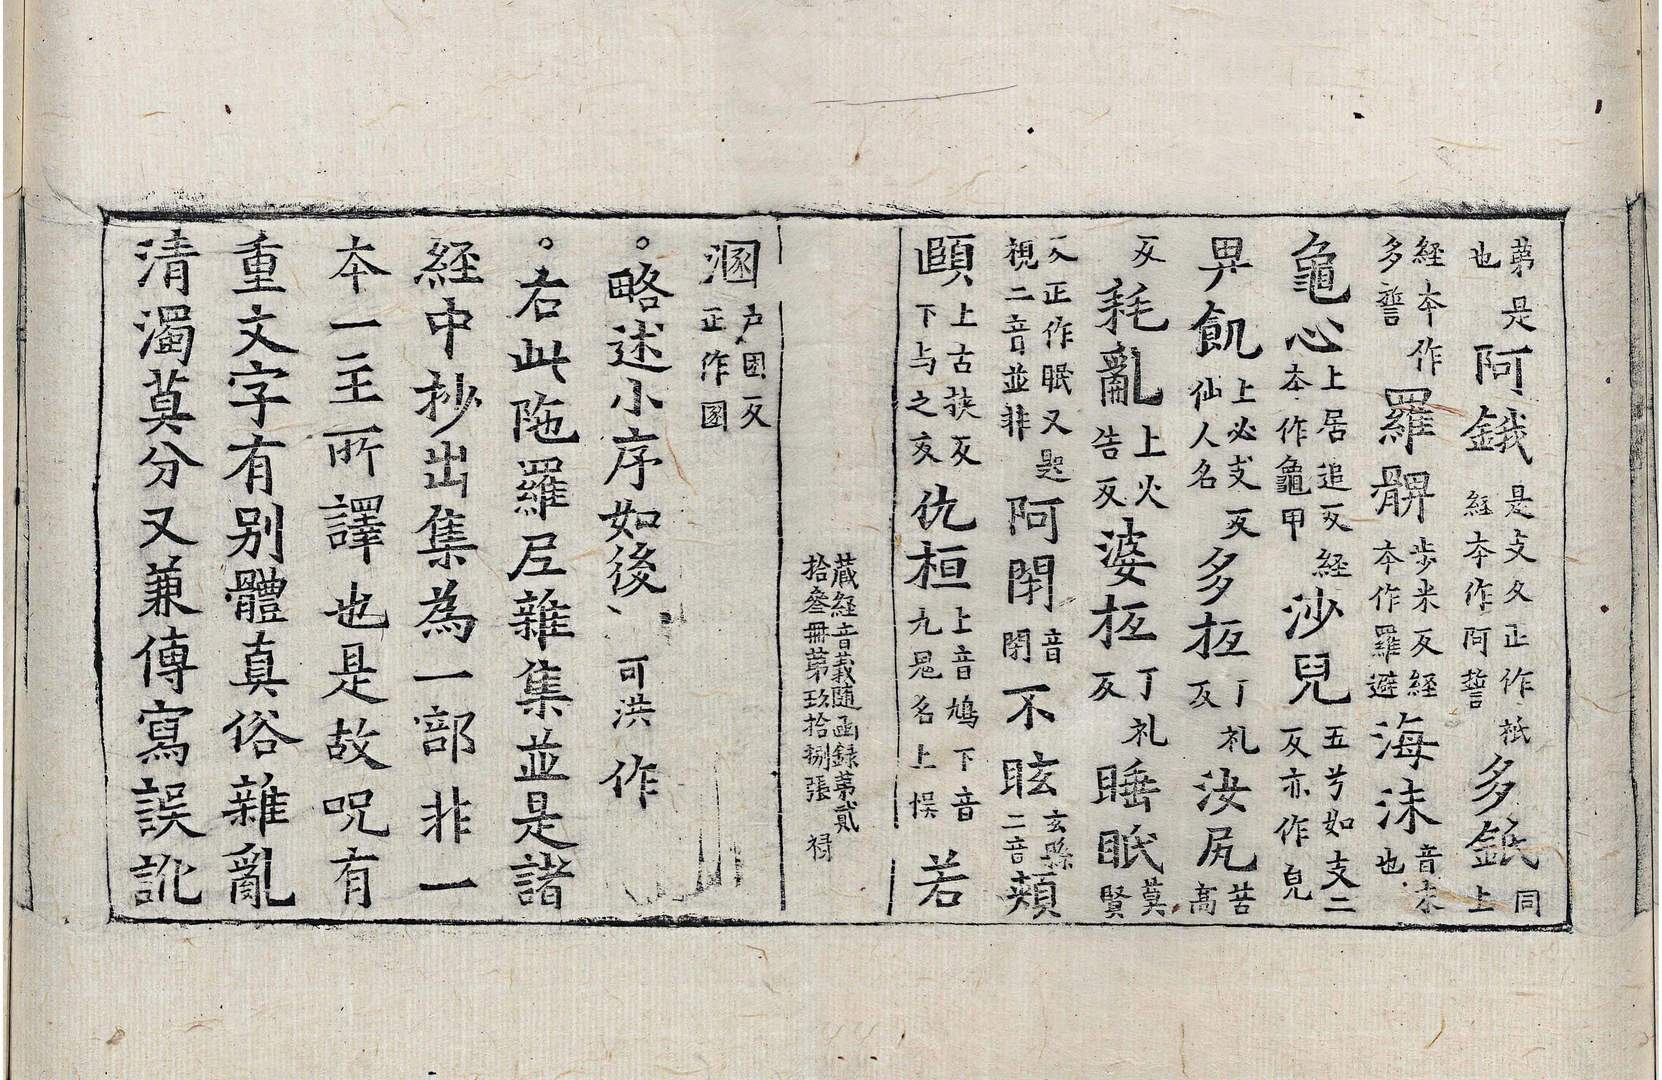 苐是也阿鋨是支反正作祇経本作阿誓多鉽同上
経本作多誓羅髀步米反経本作羅避海沫音末也
龜心上居追反経本作龜甲沙皃五兮如支二反亦作皃
畀飢上必支反仙人名多柢丁礼反汝尻苦高
反耗亂上火告反婆柢丁礼反睡眠莫賢
反正作眠又題視二音並非阿閇音閇不眩玄縣二音頰
頤上古挾反下与之反仇桓上音鳩下音丸鬼名上悮若
蔵経音義随函録苐貳拾叄冊苐玖拾捌張 祷
溷户困反正作圂
。略述小序如後、可洪作
。右此陁羅尼雜集並是諸
経中抄出集為一部非一
本一主所譯也是故呪有
重文字有别體真俗雜亂
清濁莫分又兼傳寫誤訛